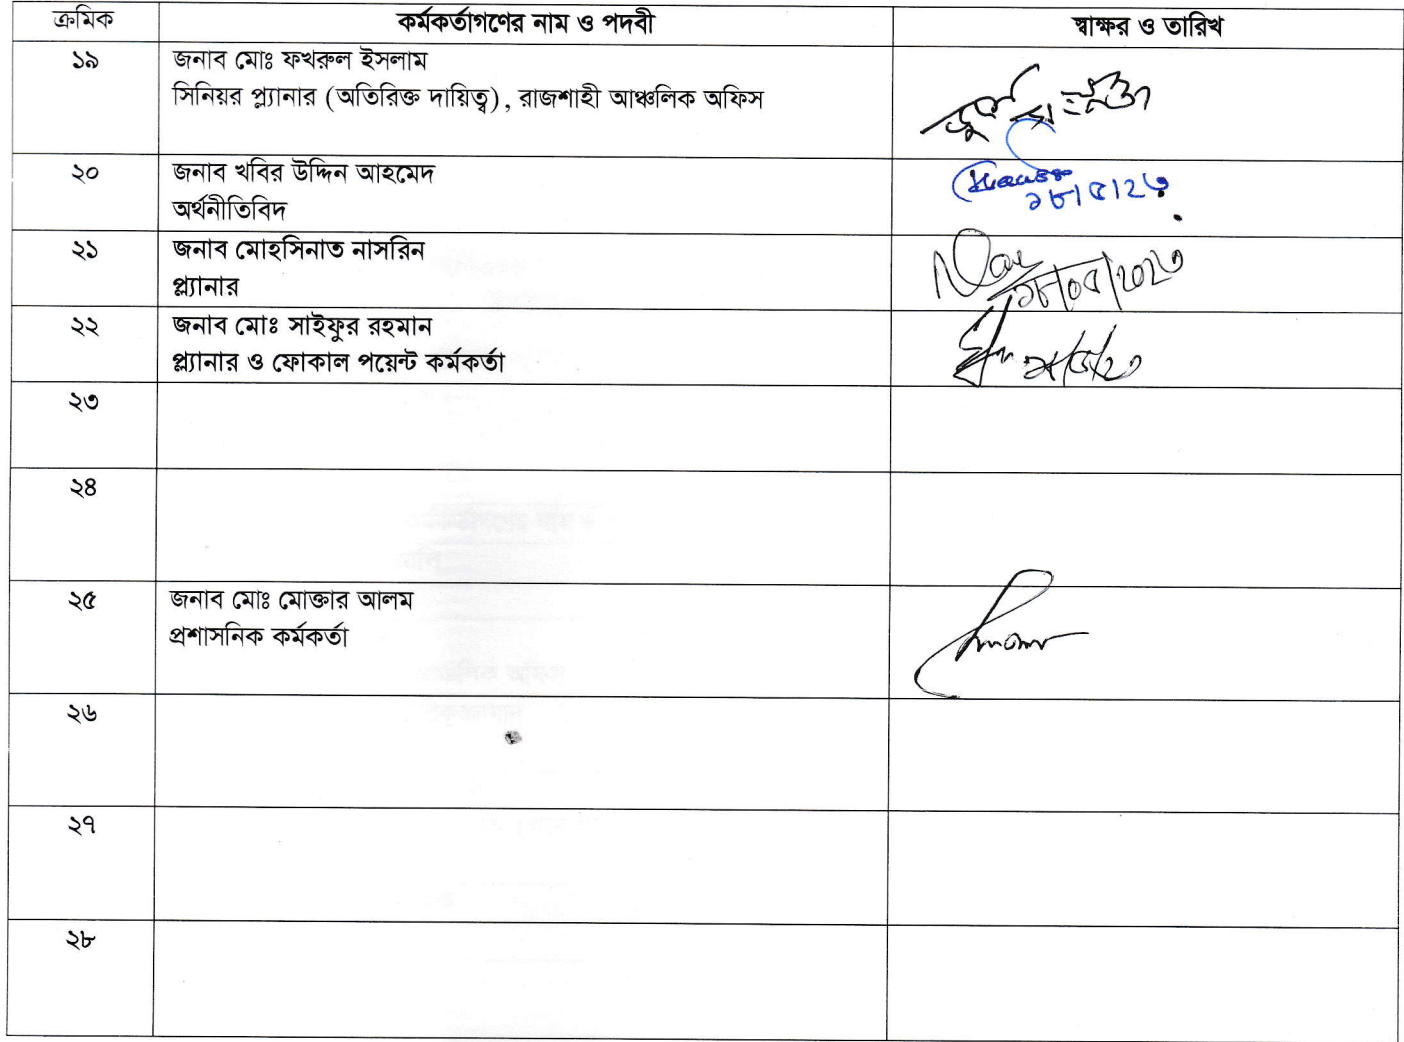 ক্রমিক কর্মকর্তাগণের নাম ও পদবী স্বাক্ষর ও তারিখ
১৯ জনাব মোঃ ফখরুল ইসলাম
সিনিয়র প্ল্যানার (অতিরিক্ত দায়িত্ব), রাজশাহী আঞ্চলিক অফিস
২০ জনাব খবির উদ্দিন আহমেদ
অর্থনীতিবিদ ১৮/৫/২৩
২১ জনাব মোহসিনাত নাসরিন
প্ল্যানার ১৮/০৫/২০২৩
২২ জনাব মোঃ সাইফুর রহমান
প্ল্যানার ও ফোকাল পয়েন্ট কর্মকর্তা
২৩
২৪
২৫ জনাব মোঃ মোক্তার আলম
প্রশাসনিক কর্মকর্তা
২৬
২৭
২৮